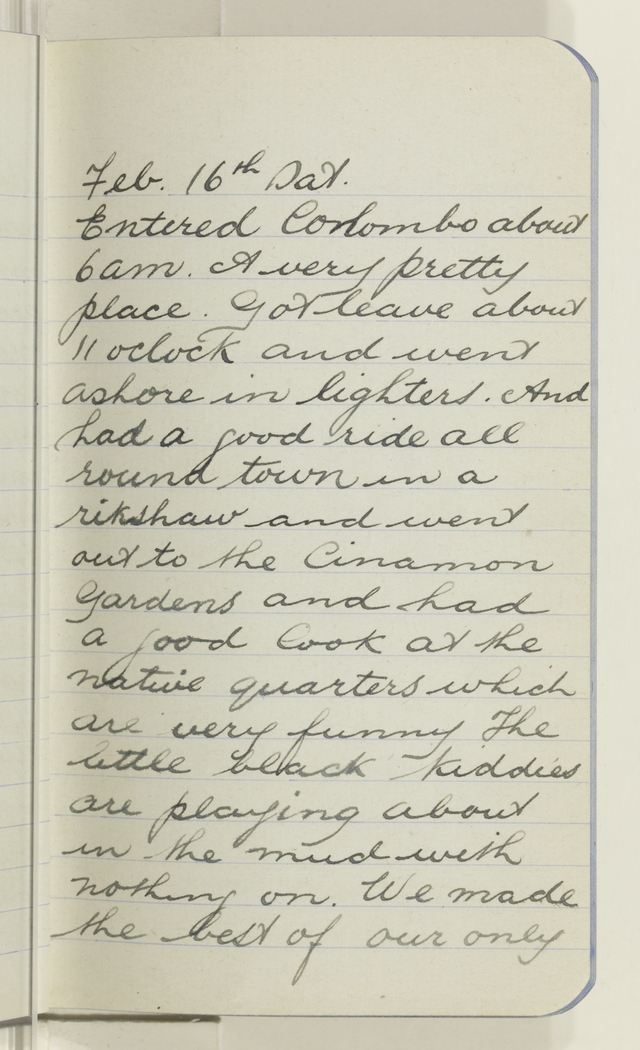 Feb. 16th Sat.
Entered Conlombo about
6am. A very pretty
place. Got leave about
11 oclock and went
ashore in lighters. And
had a good ride all
round town in a
rikshaw and went
out to the Cinamon
Gardens and had
a good look at the
native quarters which
are very funny The
little black kiddies
are playing about
in the mud with
nothing on. We made
the best of our only